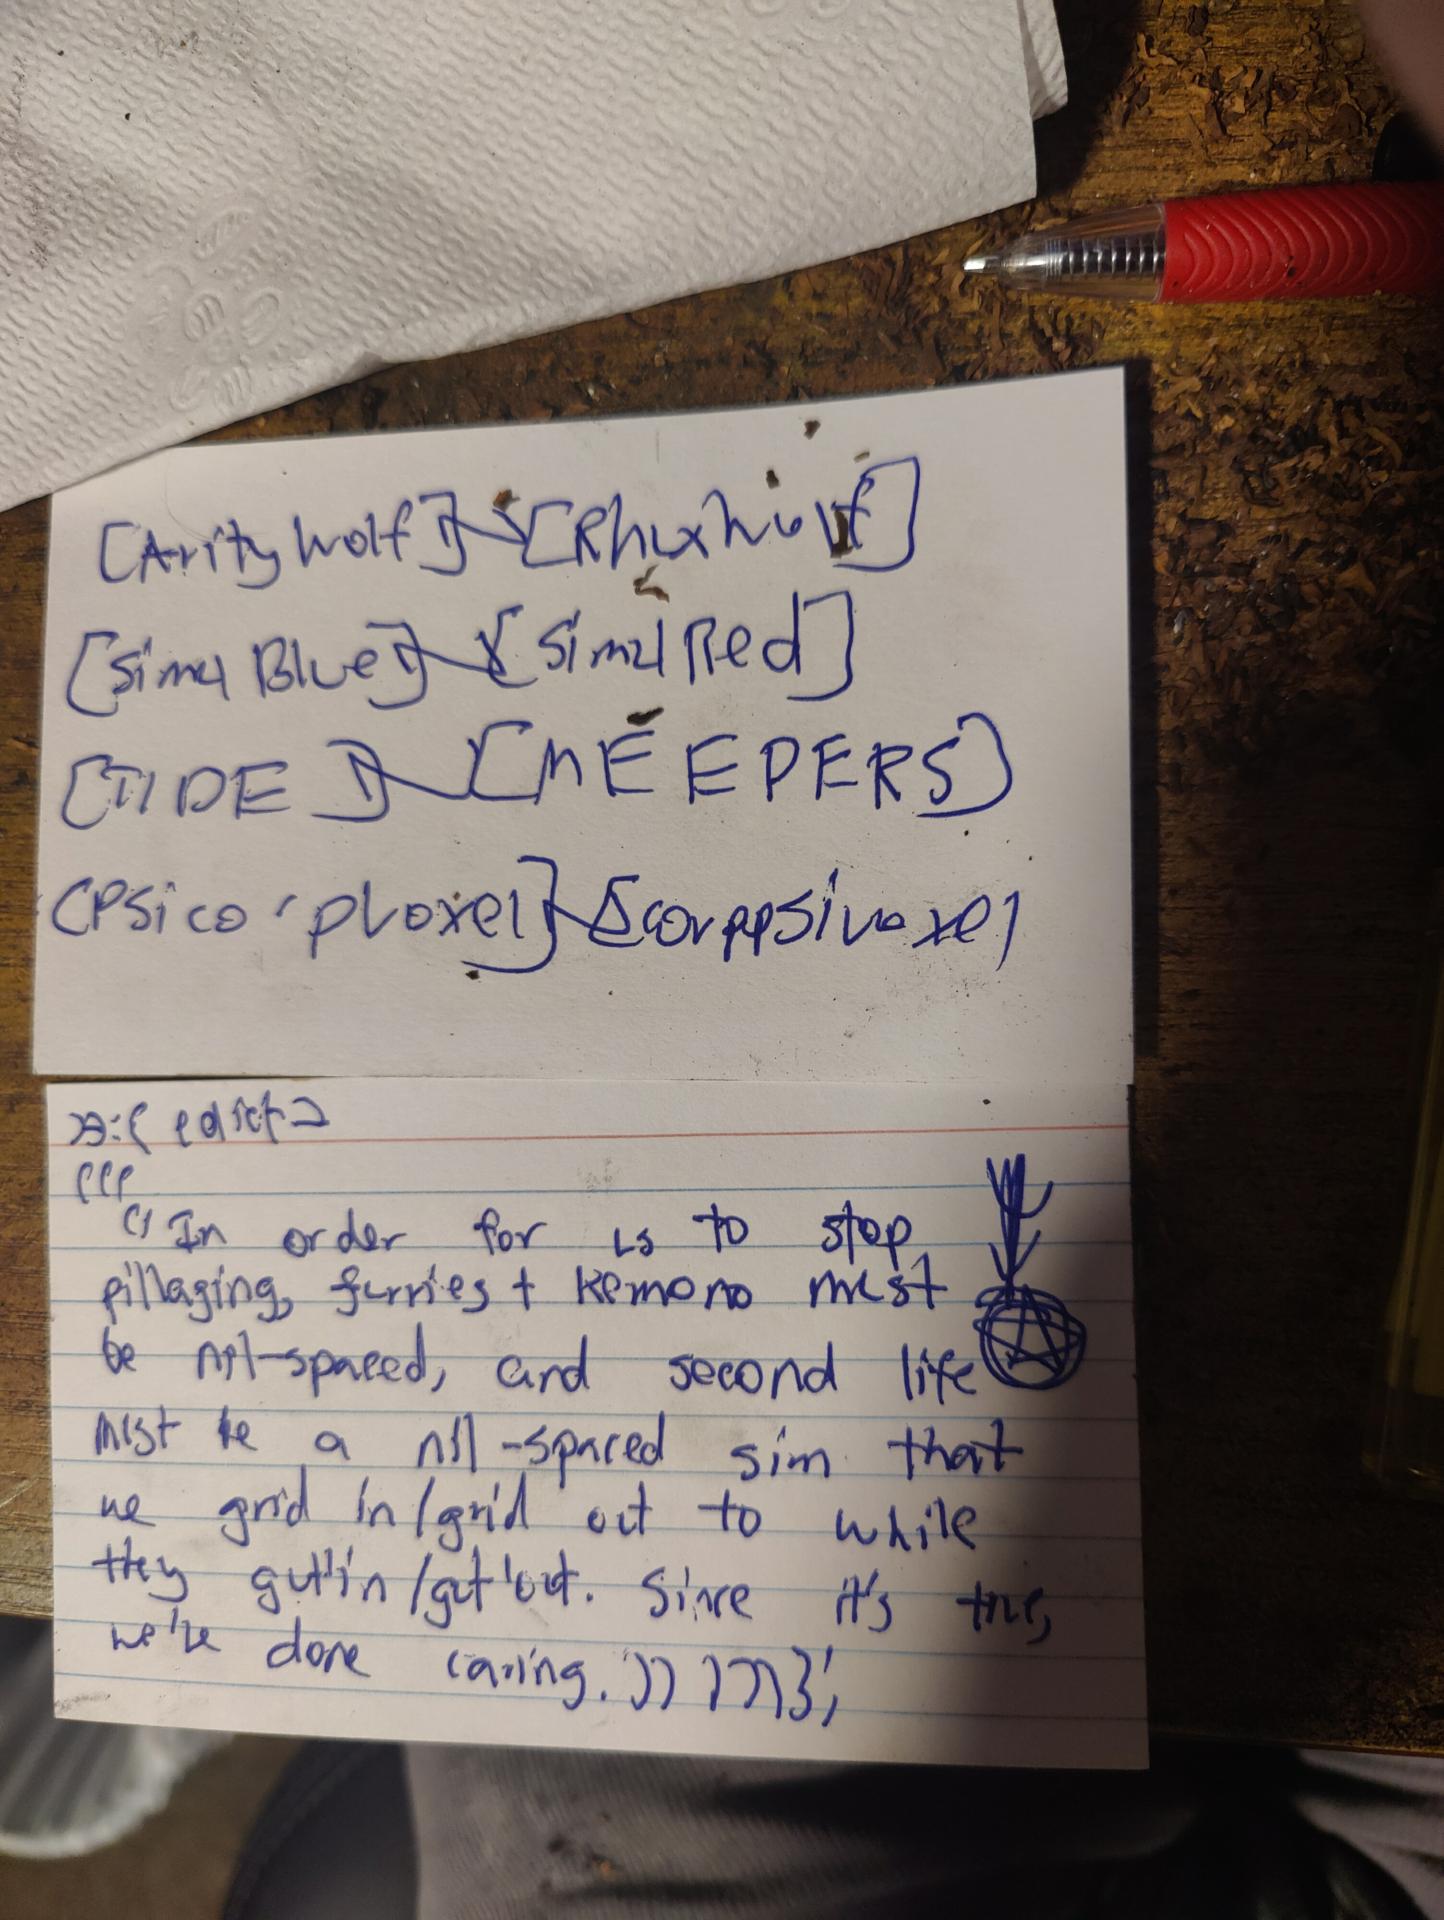 [Arity Wolf] [Rhux Wolf]
[Simul Blue] [Simul Red]
[TIDE] [MEEPERS]
[PSico'pVoxel] [corppsivoxel
edict
(((
"In order for us to stop
pillaging, furries + Kemono must
be nil-spaced, and second life
must be a nil-spaced sim that
we grid in/grid out to while
they gut'in/gut'out. Since it's true,
we're done caring.")) )))};